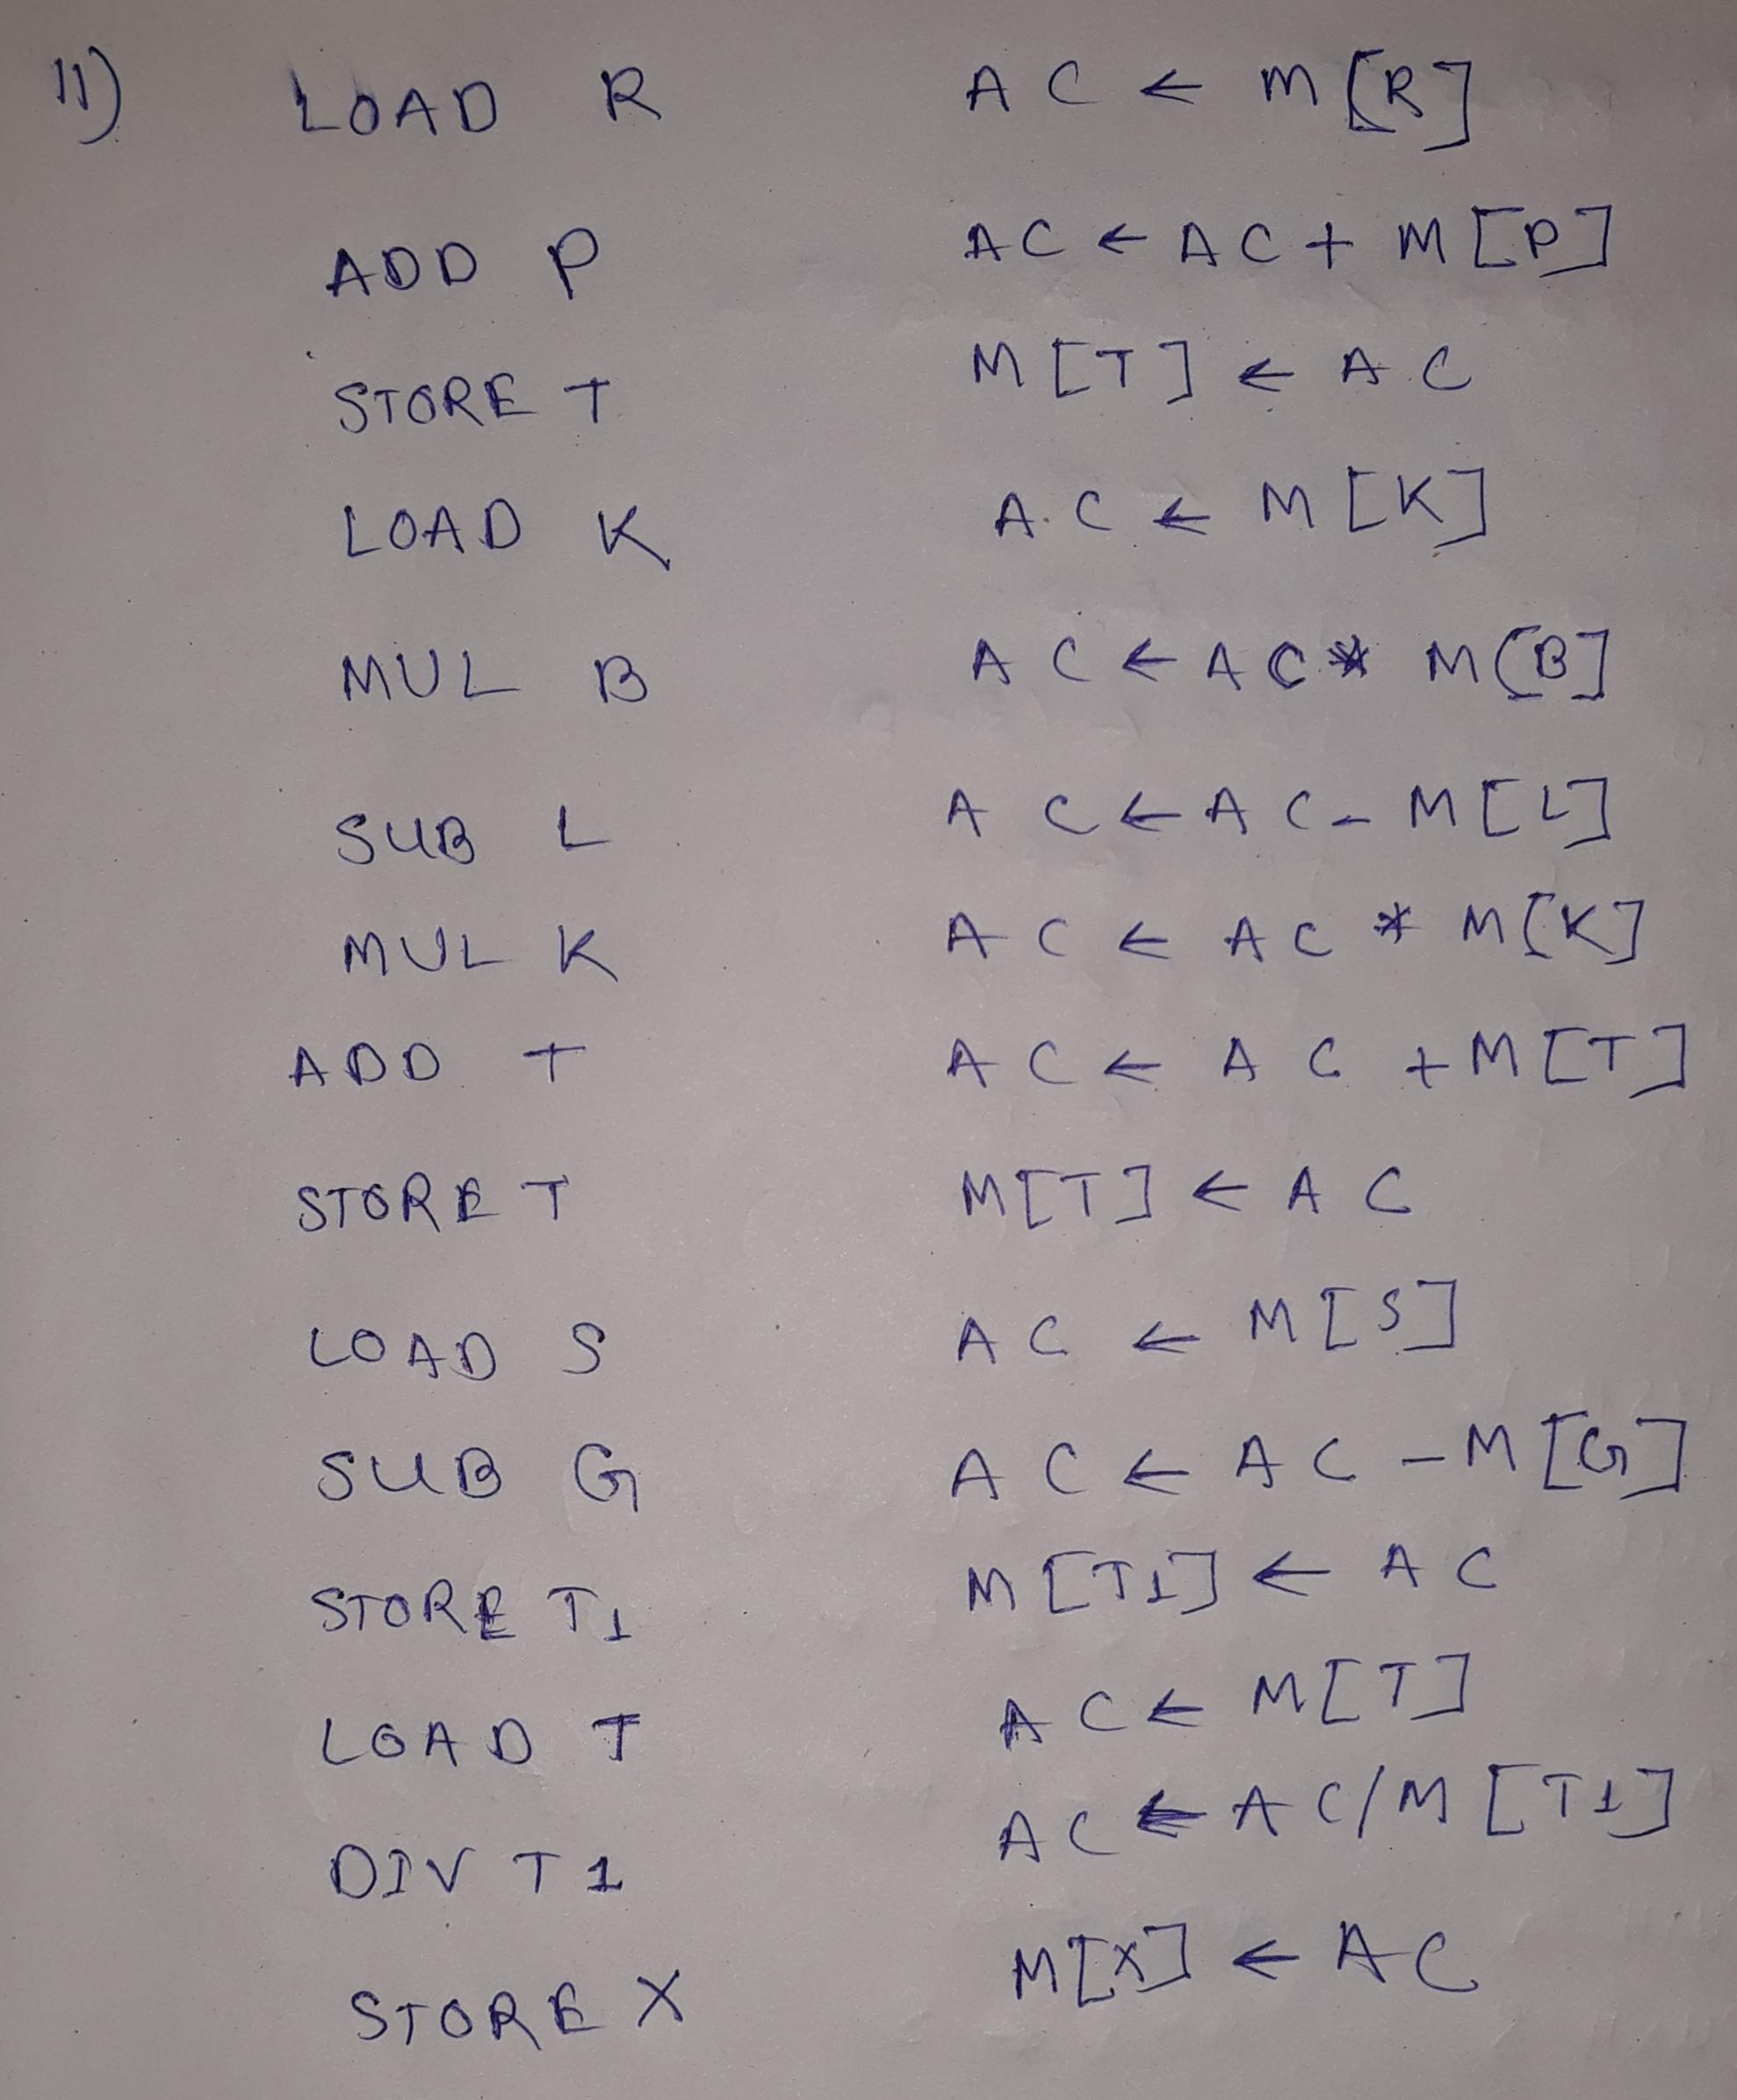 11) LOAD R AC ← M[R]
ADD P AC ← AC + M[P]
STORE T M[T] ← AC
LOAD K A.C ← M[K]
MUL B AC ← AC * M[B]
SUB L AC ← AC - M[L]
MUL K AC ← AC * M[K]
ADD T AC ← AC + M[T]
STORE T M[T] ← AC
LOAD S AC ← M[S]
SUB G AC ← AC - M[G]
STORE T1 M[T1] ← AC
LOAD T AC ← M[T]
DIV T1 AC ← AC/M[T1]
STORE X M[X] ← AC